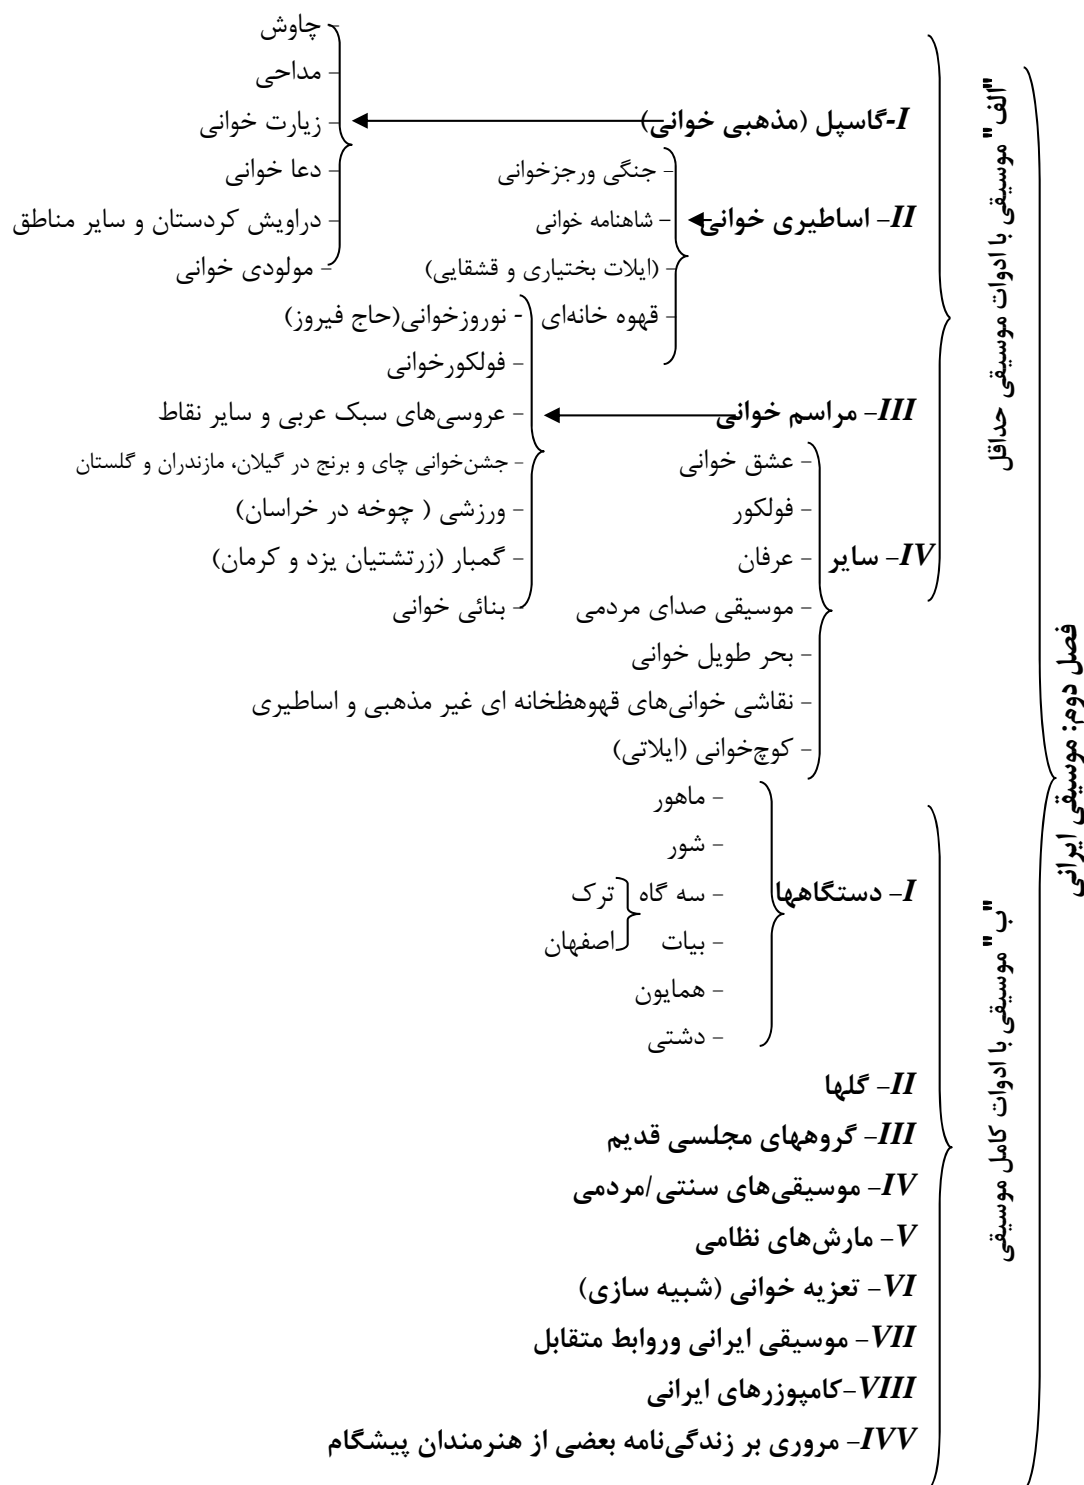 فصل دوم: موسیقی ایرانی
"الف" موسیقی با ادوات موسیقی حداقل
I-گاسپل (مذهبی خوانی)
- چاوش
- مداحی
- زیارت خوانی
- دعا خوانی
- دراویش کردستان و سایر مناطق
- مولودی خوانی
II- اساطیری خوانی
- جنگی ورجزخوانی
- شاهنامه خوانی
- (ایلات بختیاری و قشقایی)
- قهوه خانه‌ای
III- مراسم خوانی
- نوروزخوانی(حاج فیروز)
- فولکورخوانی
- عروسی‌های سبک عربی و سایر نقاط
- جشن‌خوانی چای و برنج در گیلان، مازندران و گلستان
- ورزشی ( چوخه در خراسان)
- گمبار (زرتشتیان یزد و کرمان)
- بنائی خوانی
IV- سایر
- عشق خوانی
- فولکور
- عرفان
- موسیقی صدای مردمی
- بحر طویل خوانی
- نقاشی خوانی‌های قهوهظخانه ای غیر مذهبی و اساطیری
- کوچ‌خوانی (ایلاتی)
"ب" موسیقی با ادوات کامل موسیقی
I- دستگاهها
- ماهور
- شور
- سه گاه ترک
- بیات اصفهان
- همایون
- دشتی
II- گلها
III- گروههای مجلسی قدیم
IV- موسیقی‌های سنتی/مردمی
V- مارش‌های نظامی
VI- تعزیه خوانی (شبیه سازی)
VII- موسیقی ایرانی وروابط متقابل
VIII-کامپوزرهای ایرانی
IVV- مروری بر زندگی‌نامه بعضی از هنرمندان پیشگام